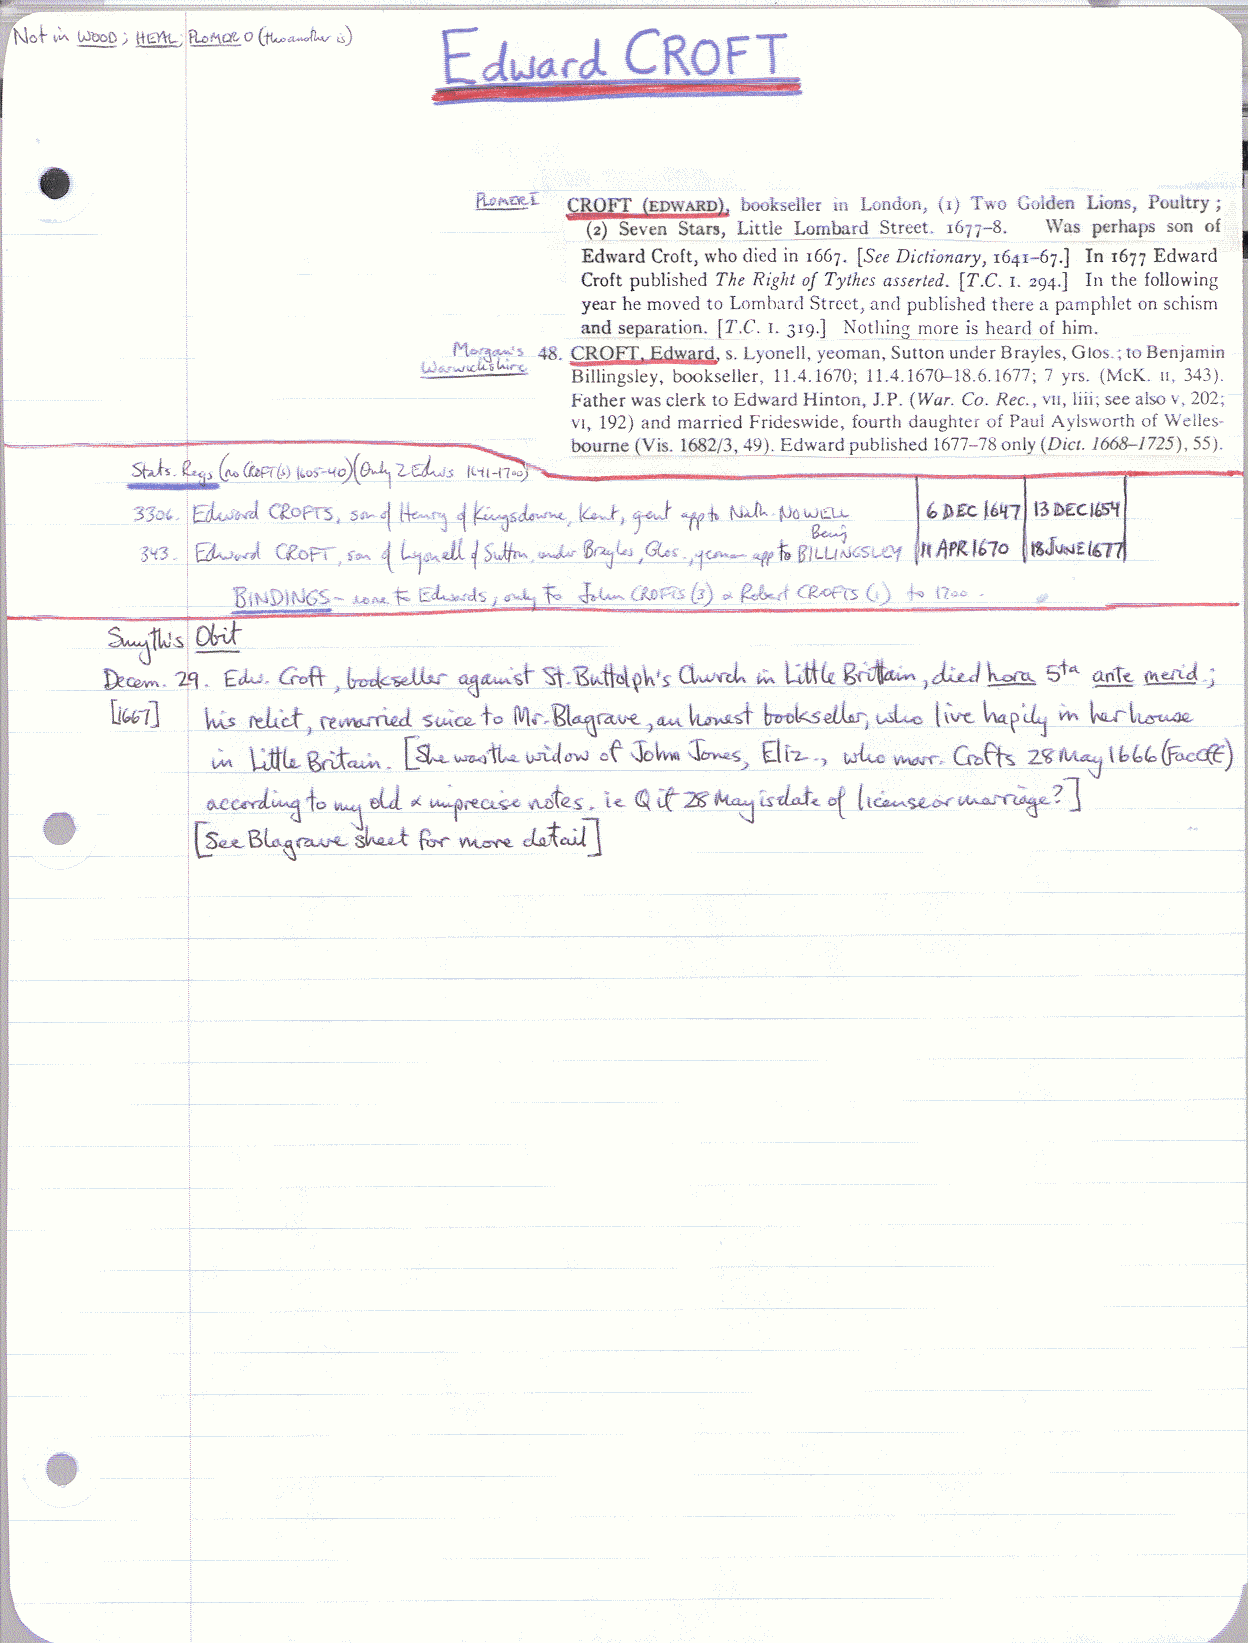 Not in WOOD; HEAL; PLOMER O (tho another is)
Edward CROFT
PLOMER I
CROFT (EDWARD), bookseller in London, (1) Two Golden Lions, Poultry;
(2) Seven Stars, Little Lombard Street. 1677–8. Was perhaps son of
Edward Croft, who died in 1667. [See Dictionary, 1641–67.] In 1677 Edward
Croft published The Right of Tythes asserted. [T.C. I. 294.] In the following
year he moved to Lombard Street, and published there a pamphlet on schism
and separation. [T.C. I. 319.] Nothing more is heard of him.
Morgan's
Warwickshire
48. CROFT, Edward, s. Lyonell, yeoman, Sutton under Brayles, Glos.; to Benjamin
Billingsley, bookseller, 11.4.1670; 11.4.1670–18.6.1677; 7 yrs. (McK. II, 343).
Father was clerk to Edward Hinton, J.P. (War. Co. Rec., VII, liii; see also V, 202;
VI, 192) and married Frideswide, fourth daughter of Paul Aylsworth of Welles-
bourne (Vis. 1682/3, 49). Edward published 1677–78 only (Dict. 1668–1725), 55).
Stats. Regs (no CROFT(S) 1605-40) (Only 2 Edws 1641-1700)
3306. Edward CROFTS, son of Henry of Kingsdowne, Kent, gent app to Nath. NOWELL 6 DEC 1647 13 DEC 1654
Benj
343. Edward CROFT, son of Lyonell of Sutton under Brayles, Glos., yeoman app to BILLINGSLEY 11 APR 1670 18 JUNE 1677
BINDINGS - none to Edwards, only to John CROFTS (3) & Robert CROFTS (1) to 1700.
Smyth's Obit
Decem. 29. Edw. Croft, bookseller against St. Buttolph's Church in Little Brittain, died hora 5ta ante merid.;
[1667] his relict, remarried since to Mr. Blagrave, an honest bookseller, who live hapily in her house
in Little Britain. [She was the widow of John Jones, Eliz., who marr. Crofts 28 May 1666 (FacOff)
according to my old & imprecise notes. ie Q if 28 May is date of license or marriage?]
[See Blagrave sheet for more detail]